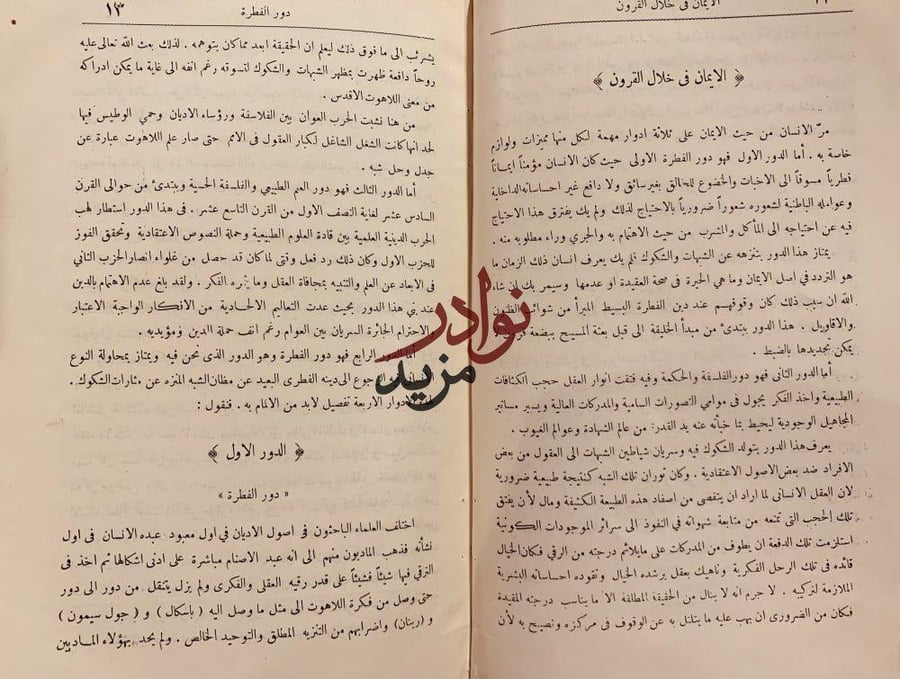 الايمان فى خلال القرون
﴿ الايمان فى خلال القرون ﴾
مرّ الانسان من حيث الايمان على ثلاثة ادوار مهمة لكل منها مميزات ولوازم
خاصة به . أما الدور الاول فهو دور الفطرة الاولى حيث كان الانسان مؤمناً ايماناً
فطرياً مسوقاً الى الاخبات والخضوع للخالق بغير سائق ولا دافع غير احساساته الداخلية
وعوامله الباطنية لشعوره شعوراً ضرورياً بالاحتياج لذلك ولم يك يفترق هذا الاحتياج
فيه عن احتياجه الى المأكل والمشرب من حيث الاهتمام به والجرى وراء مطلوبه منه .
يمتاز هذا الدور بتنزهه عن الشبهات والشكوك فلم يك يعرف انسان ذلك الزمان ما
هو التردد فى اصل الايمان وما هى الحيرة فى صحة العقيدة او عدمها وسيمر بك ان شاء
الله ان سبب ذلك كان وقوفهم عند دين الفطرة البسيط المبرأ من شوائب الظنون
والاقاويل . هذا الدور يبتدئ من مبدأ الخليقة الى قبل بعثة المسيح ببضعة
يمكن تحديدها بالضبط .
أما الدور الثانى فهو دور الفلسفة والحكمة وفيه فتقت انوار العقل حجب الكثافات
الطبيعية واخذ الفكر يجول فى موامى التصورات السامية والمدركات العالية ويسبر مساتير
المجاهيل الوجودية ليحيط بما خبأته عنه يد القدرة من عالم الشهادة وعوالم الغيوب .
يعرف هذا الدور بتولد الشكوك فيه وسريان شياطين الشبهات الى العقول من بعض
الافراد ضد بعض الاصول الاعتقادية . وكان ثوران تلك الشبه كنتيجة طبيعية ضرورية
لان العقل الانسانى لما اراد ان يتفصى من اصفاد هذه الطبيعة الكثيفة ومال لأن يفتق
تلك الحجب التى تمنعه من متابعة شهواته فى النفوذ الى سرائر الموجودات الكونية
استلزمت تلك الدفعة ان يطوف من المدركات على مايلائم درجته من الرقى فكان الخيال
قائده فى تلك الرحل الفكرية وناهيك بعقل يرشده الخيال وتقوده احساساته البشرية
الملازمة لتركيبه . لا جرم انه لا ينال من الحقيفة المطلقة الا ما يناسب درجته المقيدة
فكان من الضرورى ان يهب عليه ما يتلتل به عن الوقوف فى مركزه ونصيح به لأن
دور الفطرة ١٣
يشرئب الى ما فوق ذلك ليعلم ان الحقيقة ابعد مما كان يتوهمه . لذلك بعث الله تعالى عليه
روحاً دافعة ظهرت بمظهر الشبهات والشكوك لتسوقه رغم انفه الى غاية ما يمكن ادراكه
من معنى اللاهوت الاقدس .
من هنا نشبت الحرب العوان بين الفلاسفة ورؤساء الاديان وحمي الوطيس فيها
لحد انها كانت الشغل الشاغل لكبار العقول فى الامم حتى صار علم اللاهوت عبارة عن
جدل وحل شبه .
أما الدور الثالث فهو دور العلم الطبيعي والفلسفة الحسية ويبتدئ من حوالى القرن
السادس عشر لغاية النصف الاول من القرن التاسع عشر . فى هذا الدور استطار لهب
الحرب الدينية العلمية بين قادة العلوم الطبيعية وحملة النصوص الاعتقادية وتحقق الفوز
للحزب الاول وكان ذلك رد فعل وقتى لما كان قد حصل من غلواء انصار الحزب الثانى
فى الابعاد عن العلم والتنبيه بمجافاة العقل وما يثمره الفكر . ولقد بلغ عدم الاهتمام بالدين
عند بني هذا الدور بحيث عدت التعاليم الالحادية من الافكار الواجبة الاعتبار
الاحترام الجائزة السريان بين العوام رغم انف حملة الدين ومؤيديه .
أما الدور الرابع فهو دور الفطرة وهو الدور الذى نحن فيه ويمتاز بمحاولة النوع
الرجوع الى دينه الفطرى البعيد عن مظان الشبه المنزه عن مثارات الشكوك .
الادوار الاربعة تفصيل لابد من الالمام به . فنقول :
﴿ الدور الاول ﴾
« دور الفطرة »
اختلف العلماء الباحثون فى اصول الاديان فى اول معبود عبده الانسان فى اول
نشأته فذهب الماديون منهم الى انه عبد الاصنام مباشرة على ادنى اشكالها ثم اخذ فى
الترقى فيها شيئاً فشيئاً على قدر رقيه العقلى والفكرى ولم يزل يتنقل من دور الى دور
حتى وصل من فكرة اللاهوت الى مثل ما وصل اليه ( باسكال ) و ( جول سيمون )
و (رينان) واضرابهم من التنزيه المطلق والتوحيد الخالص . ولم يحد بهؤلاء الماديين
نوادر
مزيد